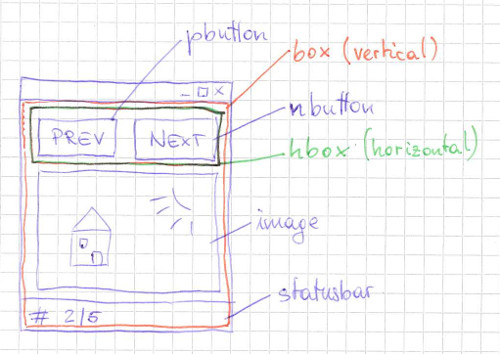 pbutton
box (vertical)
nbutton
PREV NEXT
hbox (horizontal)
image
statusbar
# 2/5